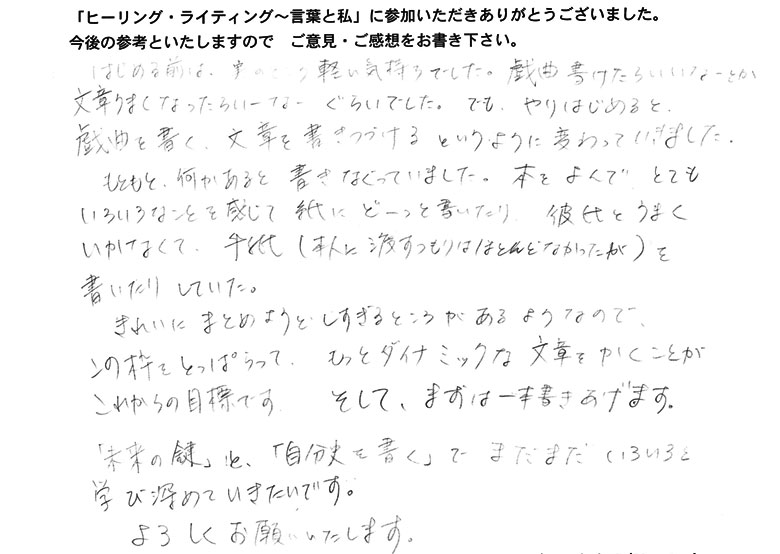 「ヒーリング・ライティング～言葉と私」に参加いただきありがとうございました。
今後の参考といたしますので　ご意見・ご感想をお書き下さい。
はじめる前は、実のところ軽い気持ちでした。戯曲書けたらいいなーとか
文章うまくなったらいーなー ぐらいでした。でも、やりはじめると、
戯曲を書く、文章を書きつづける というように変わっていきました。
もともと、何かあると 書きなぐっていました。本をよんで、とても
いろいろなことを感じて 紙に どーっと書いたり、彼氏とうまく
いかなくて、手紙（本人に渡すつもりはほとんどなかったが）を
書いたり していた。
きれいに まとめようと しすぎるところが あるようなので、
この枠をとっぱらって、もっとダイナミックな 文章を かくことが
これからの目標です。そして、まずは一本書きあげます。
「未来の鍵」と、「自分史を書く」で まだまだ いろいろと
学び深めていきたいです。
よろしくお願いいたします。